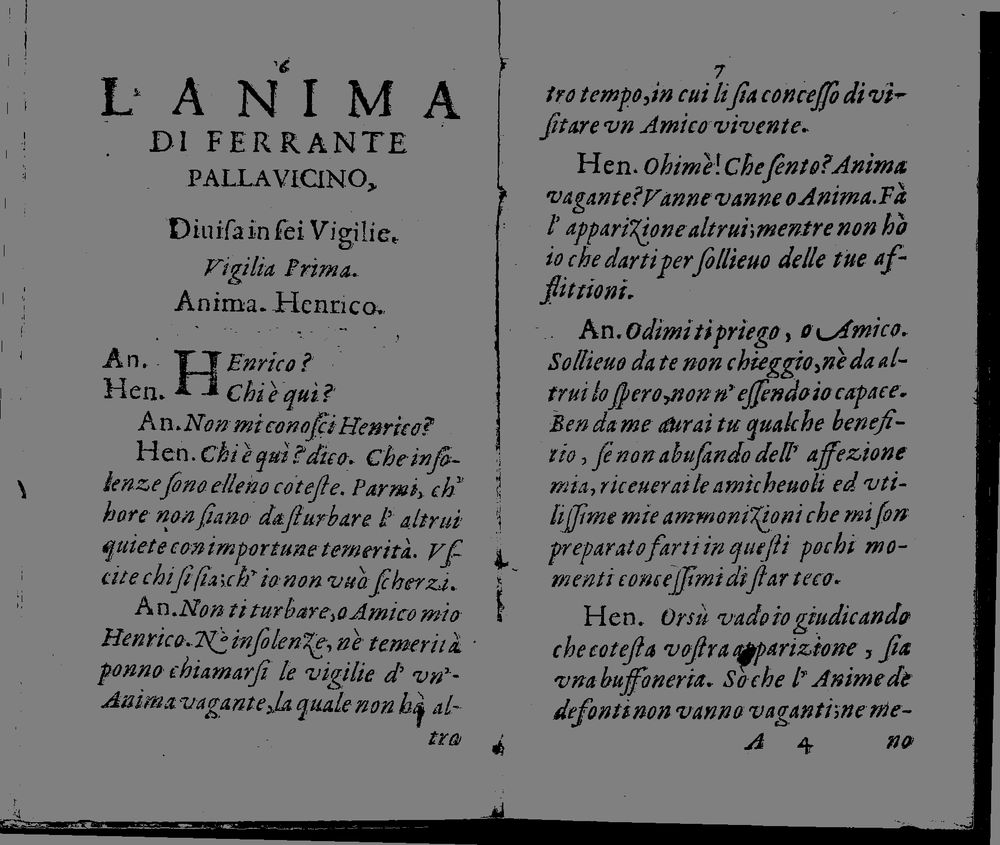 6
L'ANIMA
DI FERRANTE
PALLAVICINO,
Diuiſa in ſei Vigilie.
Vigilia Prima.
Anima. Henrico.
An. HEnrico?
Hen. Chi è quì?
An. Non mi conoſci Henrico?
Hen. Chi è quì? dico. Che inſo-
lenze ſono elleno coteſte. Parmi, ch'
hore non ſiano da ſturbare l' altrui
quiete con importune temerità. Vſ-
cite chi ſi ſia; ch' io non vuò ſcherzi.
An. Non ti turbare, o Amico mio
Henrico. Nè inſolenze, nè temerità
ponno chiamarſi le vigilie d' vn'-
Anima vagante, la quale non hà al-
tro
7
tro tempo, in cui li ſia conceſſo di vi-
ſitare vn Amico vivente.
Hen. Ohimè! Che ſento? Anima
vagante? Vanne vanne o Anima. Fà
l' apparizione altrui; mentre non hò
io che darti per ſollieuo delle tue af-
flittioni.
An. Odimi ti priego, o Amico.
Sollieuo da te non chieggio, nè da al-
trui lo ſpero, non n' eſſendo io capace.
Ben da me aurai tu qualche benefi-
tio, ſe non abuſando dell' affezione
mia, riceuerai le amicheuoli ed vti-
liſſime mie ammonizioni che mi ſon
preparato farti in queſti pochi mo-
menti conceſſimi di ſtar teco.
Hen. Orsù vado io giudicando
che coteſta voſtra apparizione, ſia
vna buffoneria. Sò che l' Anime de
defonti non vanno vaganti; ne me-
A 4 no